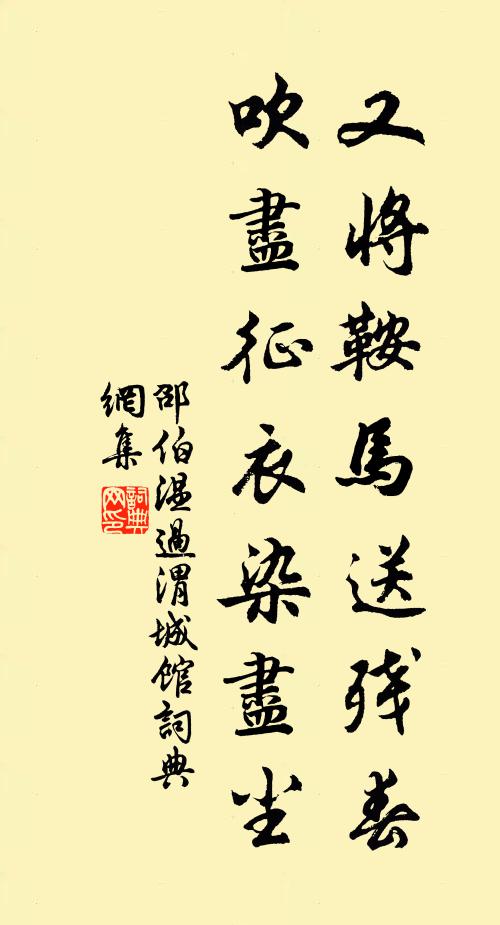 又將鞍馬送殘春
吹盡征衣染盡尘
邵伯溫過渭城館詞典
網集
詞典
网印